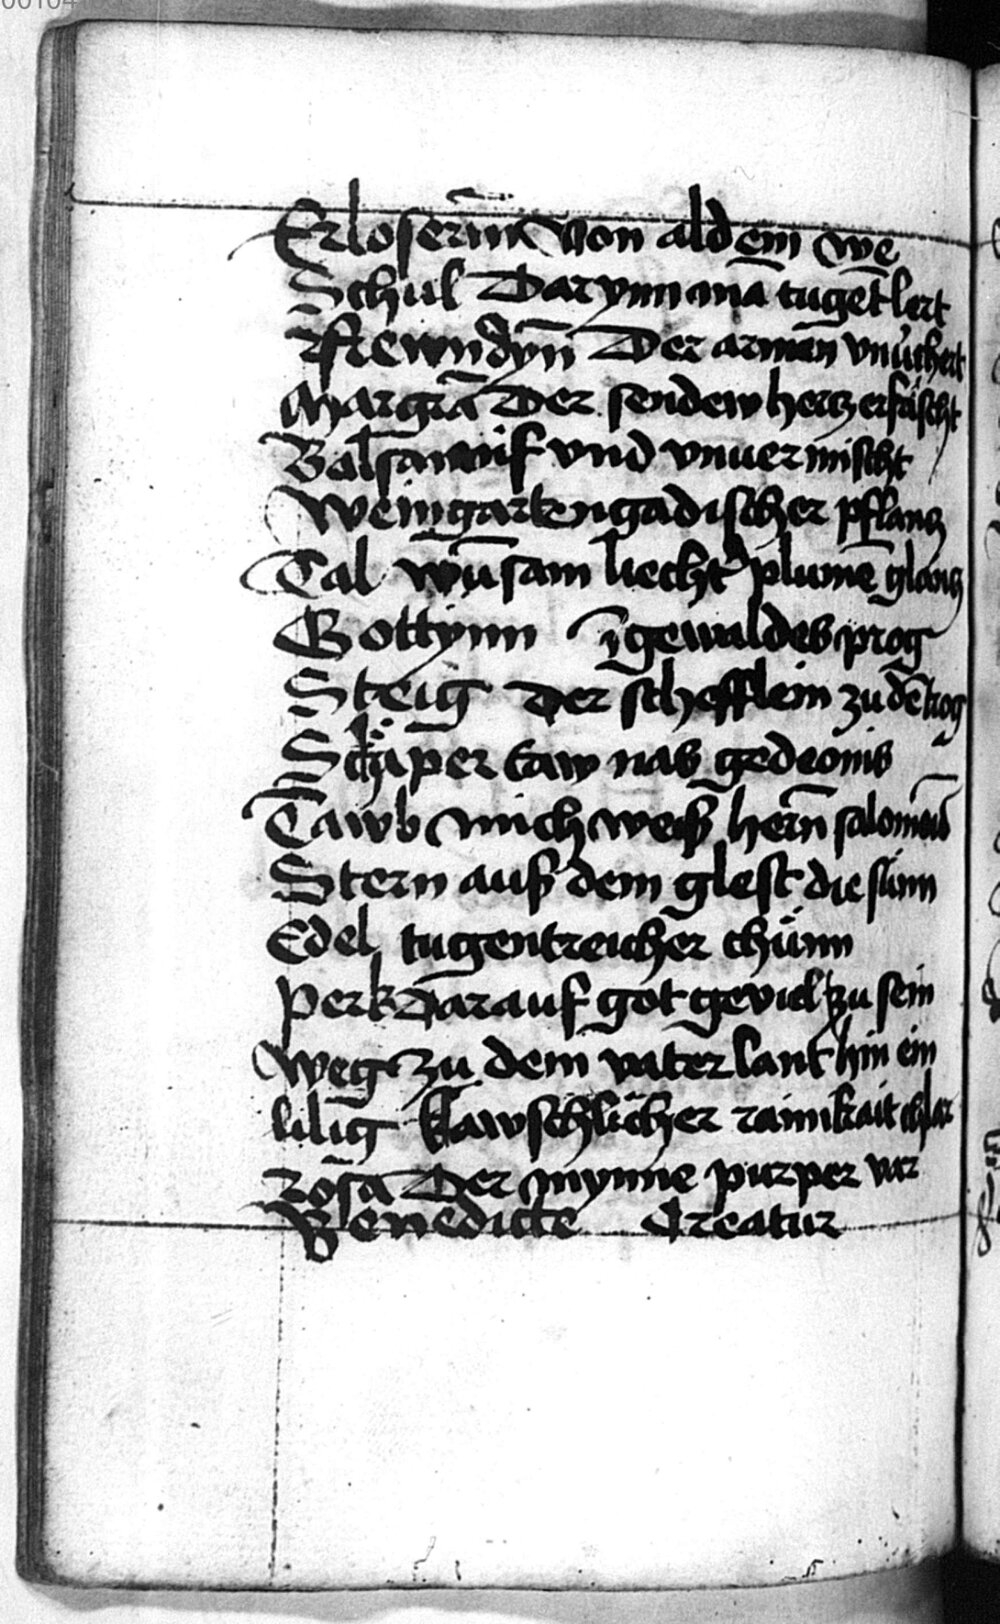 Erloserin̄ von ald em we
Schul Dar ynn mā tugēt lert
Frewndyn̄ Der armen vnu̇chert
Margrā Der senden hertz erfrischt
Balsam reif vnd vnuermischt
Weingartt engadischer pflantz
Tal wūsam liecht̉ plumē glantz
Gottynn ī gewaldes prog
Steig der scheffleim zu dē trog
Schäper taw nas gedeonis
Tawb mich weiß hern̄ salomōīs
Stern auß dem glest die sünn
Edel tugentreicher chünn
Perk Darauf got geviel zu sein
Weg zu dem vaterlant hin ein
lilig kawschlicher rainikait chlar
Rosā Der mynne purper var
Benedicte Creatur